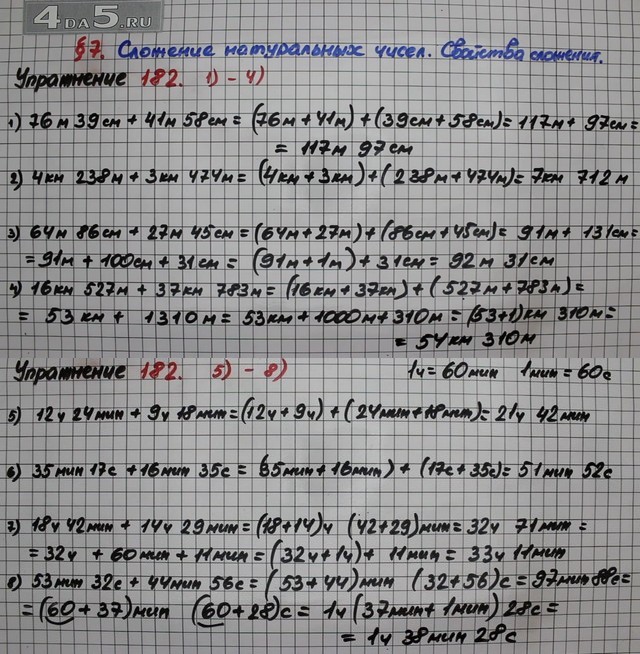 4DA5.RU
§7. Сложение натуральных чисел. Свойства сложения.
Упражнение 182. 1) - 4)
1) 76м 39см + 41м 58см = (76м + 41м) + (39см + 58см) = 117м + 97см =
= 117м 97см
2) 4км 238м + 3км 474м = (4км + 3км) + (238м + 474м) = 7км 712м
3) 64м 86см + 27м 45см = (64м + 27м) + (86см + 45см) = 91м + 131см =
= 91м + 100см + 31см = (91м + 1м) + 31см = 92м 31см
4) 16км 527м + 37км 783м = (16км + 37км) + (527м + 783м) =
= 53км + 1310м = 53км + 1000м + 310м = (53+1)км 310м =
= 54км 310м
Упражнение 182. 5) - 8) 1ч = 60мин 1мин = 60с
5) 12ч 24мин + 9ч 18мин = (12ч + 9ч) + (24мин + 18мин) = 21ч 42мин
6) 35мин 17с + 16мин 35с = (35мин + 16мин) + (17с + 35с) = 51мин 52с
7) 18ч 42мин + 14ч 29мин = (18+14)ч (42+29)мин = 32ч 71мин =
= 32ч + 60мин + 11мин = (32ч + 1ч) + 11мин = 33ч 11мин
8) 53мин 32с + 44мин 56с = (53 + 44)мин (32 + 56)с = 97мин 88с =
= (60 + 37)мин (60 + 28)с = 1ч (37мин + 1мин) 28с =
= 1ч 38мин 28с